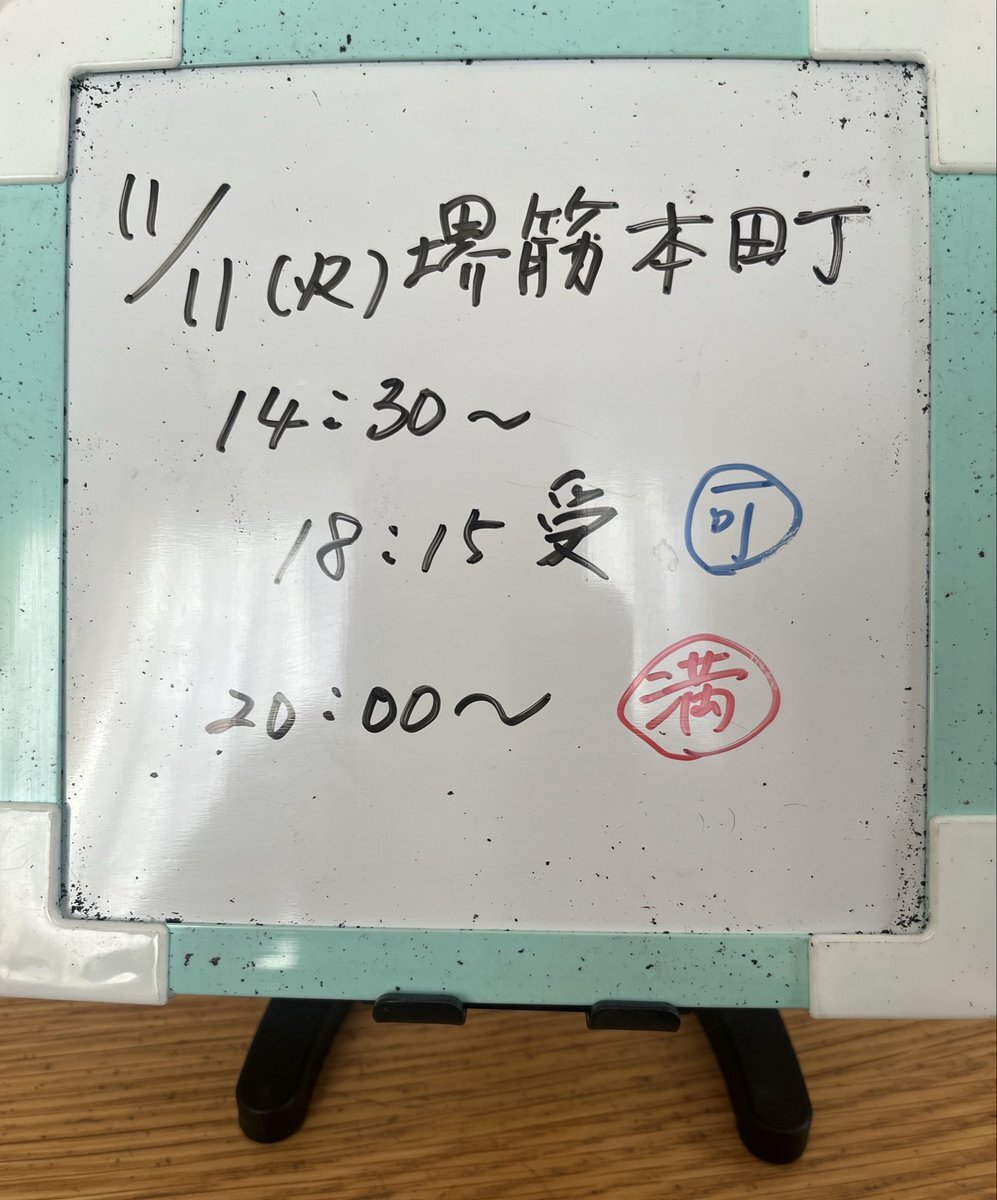 11/11(火)堺筋本町
14:30～
18:15受 可
20:00～ 満